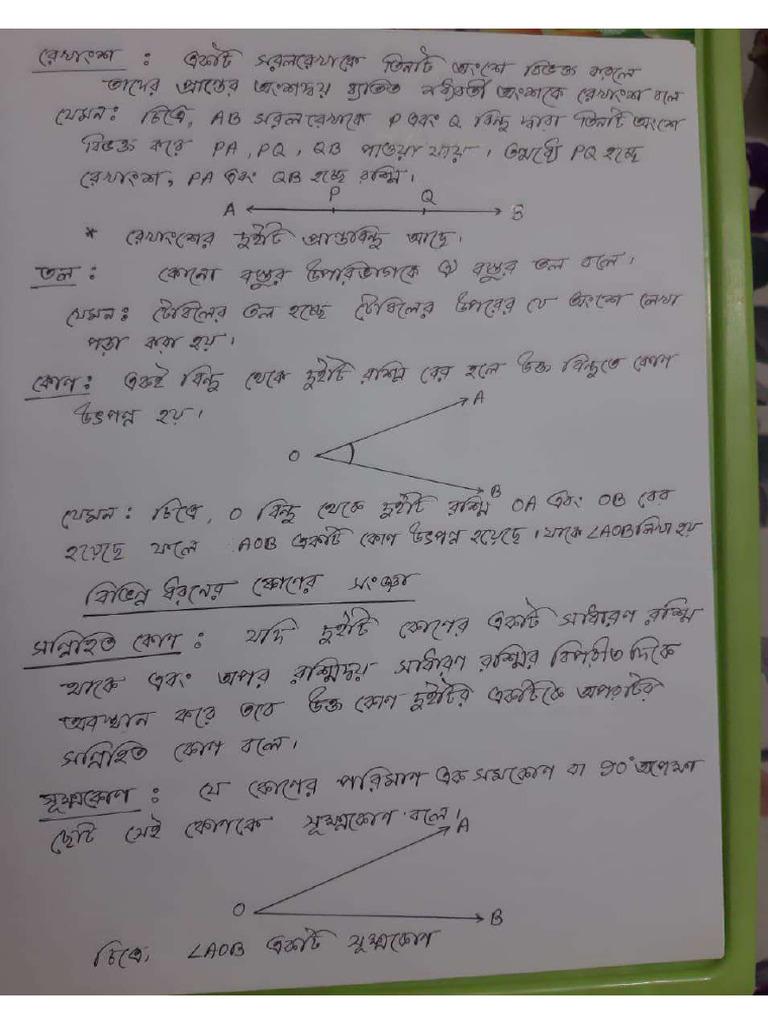 রেখাংশ : একটি সরলরেখাকে তিনটি অংশে বিভক্ত করলে
তাদের প্রান্তের অংশদ্বয় ব্যতিত মধ্যবর্তী অংশকে রেখাংশ বলে
যেমন: চিত্রে, AB সরলরেখাকে P এবং Q বিন্দু দ্বারা তিনটি অংশে
বিভক্ত করে PA, PQ, QB পাওয়া যায়। তন্মধ্যে PQ হচ্ছে
রেখাংশ, PA এবং QB হচ্ছে রশ্মি।
A P Q B
* রেখাংশের দুইটি প্রান্তবিন্দু আছে।
তল : কোনো বস্তুর উপরিভাগকে ঐ বস্তুর তল বলে।
যেমন: টেবিলের তল হচ্ছে টেবিলের উপরের যে অংশে লেখা
পড়া করা হয়।
কোণ : একই বিন্দু থেকে দুইটি রশ্মি বের হলে উক্ত বিন্দুতে কোণ
উৎপন্ন হয়।
A
O
B
যেমন : চিত্রে, O বিন্দু থেকে দুইটি রশ্মি OA এবং OB বের
হয়েছে ফলে AOB একটি কোণ উৎপন্ন হয়েছে। যাকে ∠AOB লিখা হয়
বিভিন্ন ধরনের কোণের সংজ্ঞা
সন্নিহিত কোণ : যদি দুইটি কোণের একটি সাধারণ রশ্মি
থাকে এবং অপর রশ্মিদ্বয় সাধারণ রশ্মির বিপরীত দিকে
অবস্থান করে তবে উক্ত কোণ দুইটির একটিকে অপরটির
সন্নিহিত কোণ বলে।
সূক্ষ্মকোণ : যে কোণের পরিমাণ এক সমকোণ বা ৯০° অপেক্ষা
ছোট সেই কোণকে সূক্ষ্মকোণ বলে।
A
O
B
চিত্রে, ∠AOB একটি সূক্ষ্মকোণ